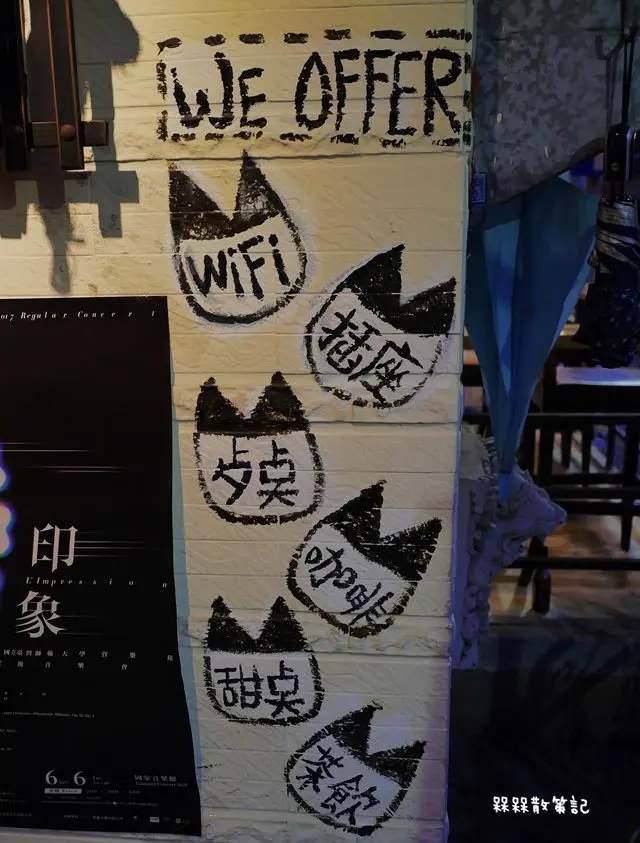 WE OFFER
WiFi
插座
歺奌
咖啡
甜奌
茶飲
017 Regular Concert
印
L'Impression
象
國立臺灣師範大學管樂隊
期音樂會
6 6
國家音樂廳
槑槑散策記